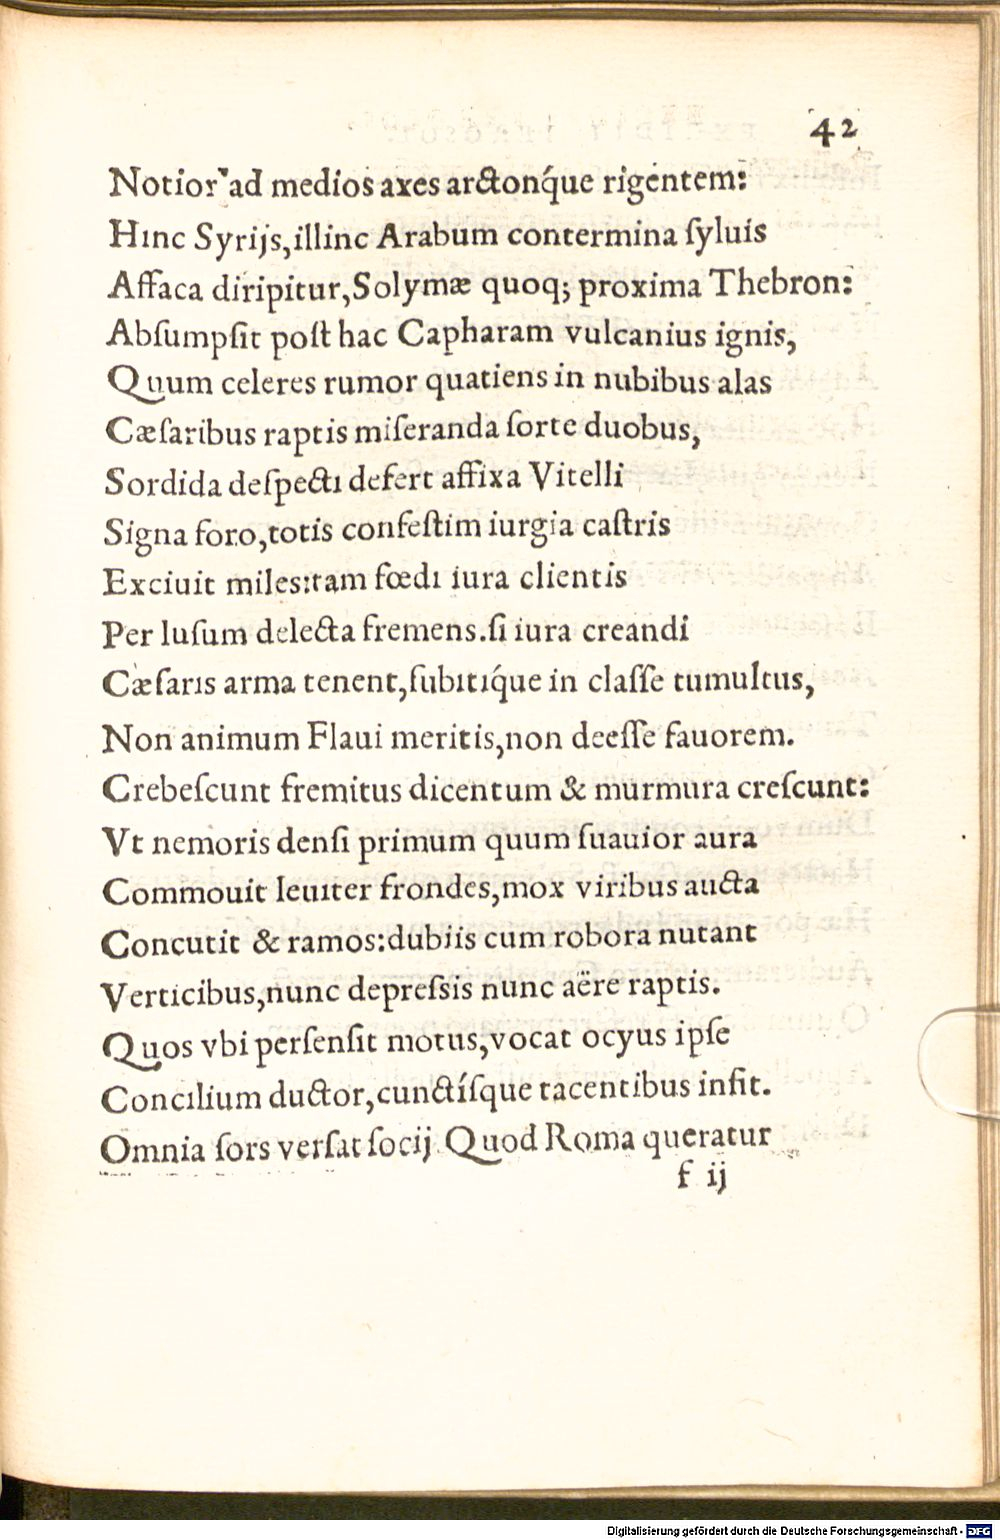 42
Notior ad medios axes arctonq́ue rigentem:
Hinc Syrijs,illinc Arabum contermina ſyluis
Affaca diripitur,Solymæ quoq; proxima Thebron:
Abſumpſit poſt hac Capharam vulcanius ignis,
Quum celeres rumor quatiens in nubibus alas
Cæſaribus raptis miſeranda ſorte duobus,
Sordida deſpecti defert affixa Vitelli
Signa foro,totis confeſtim iurgia caſtris
Exciuit miles:tam fœdi iura clientis
Per luſum delecta fremens.ſi iura creandi
Cæſaris arma tenent,ſubitiq́ue in claſſe tumultus,
Non animum Flaui meritis,non deeſſe fauorem.
Crebeſcunt fremitus dicentum & murmura creſcunt:
Vt nemoris denſi primum quum ſuauior aura
Commouit leuiter frondes,mox viribus aucta
Concutit & ramos:dubiis cum robora nutant
Verticibus,nunc depreſsis nunc aëre raptis.
Quos vbi perſenſit motus,vocat ocyus ipſe
Concilium ductor,cunctíſque tacentibus inſit.
Omnia ſors verſat ſocij Quod Roma queratur
f ij
Digitalisierung gefördert durch die Deutsche Forschungsgemeinschaft - DFG